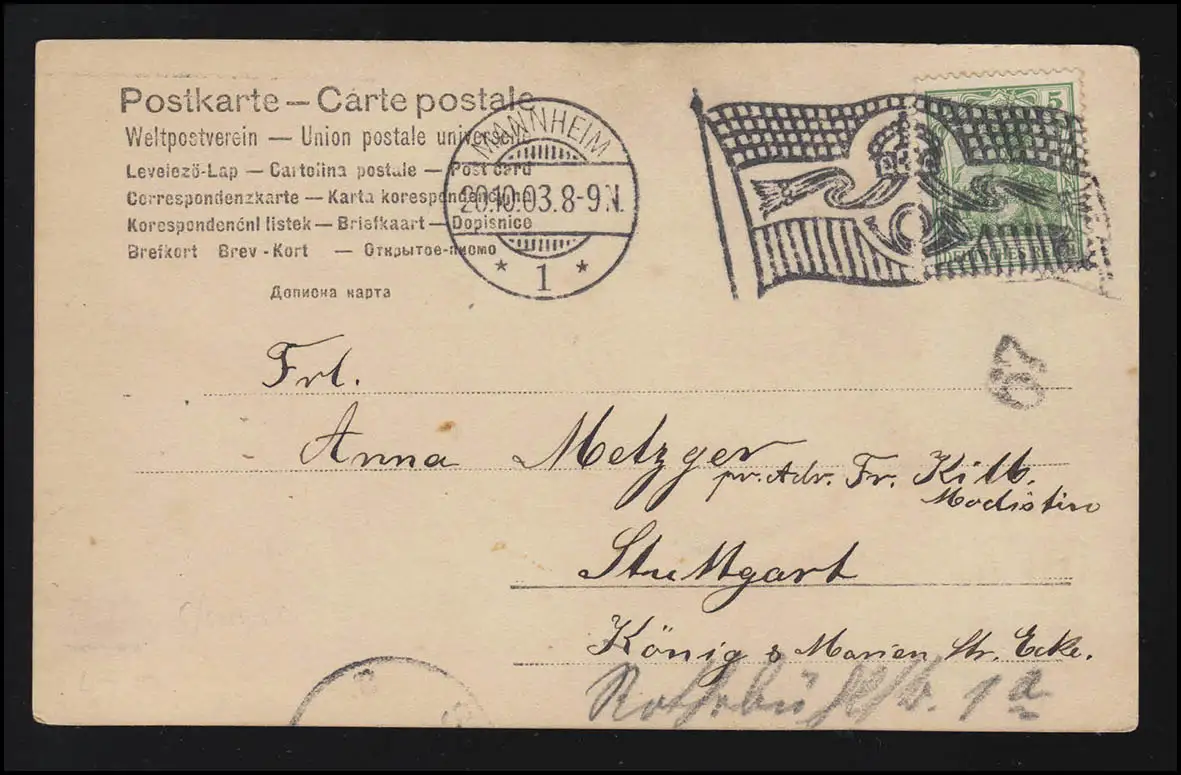 Postkarte — Carte postale
Weltpostverein — Union postale universelle
Levelező-Lap — Cartolina postale — Post card
Correspondenzkarte — Karta korespondencyjna
Korespondenční listek — Briefkaart — Dopisnice
Brefkort Brev-Kort — Открытое-писмо
Дописна карта
MANNHEIM
20.10.03.8-9N.
* 1 *
5
67
Frl.
Anna Metzger
pr. Adr. Fr. Kilb.
Modistin
Stuttgart
König & Marien Str. Ecke.
1a